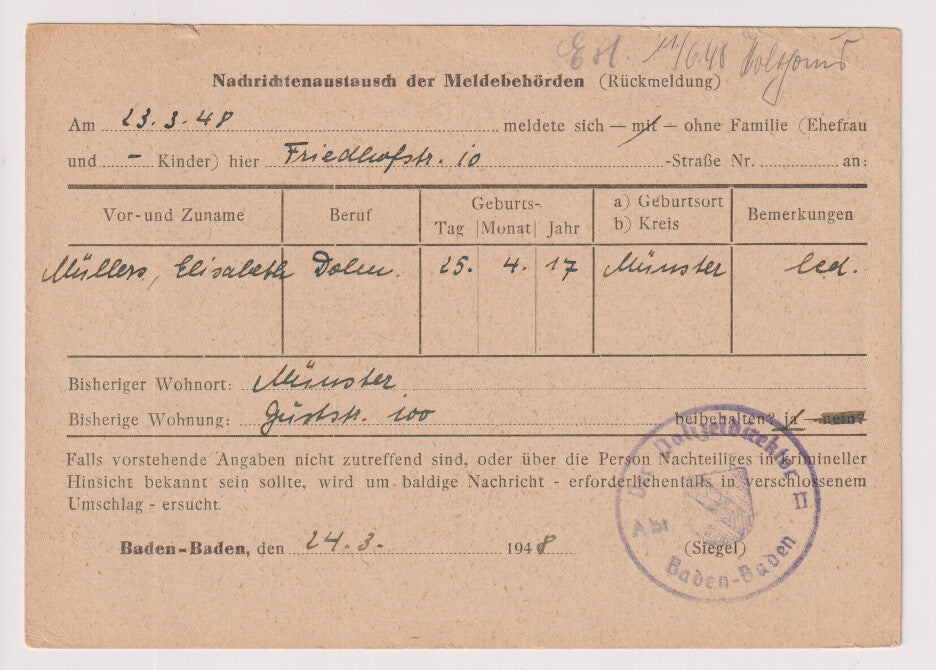 11/6.48
Nachrichtenaustausch der Meldebehörden (Rückmeldung)
Am 23.3.48 meldete sich — mit — ohne Familie (Ehefrau
und – Kinder) hier Friedhofstr. 10 -Straße Nr. an:
Vor- und Zuname Beruf Geburts- Tag Monat Jahr a) Geburtsort b) Kreis Bemerkungen
Müllers, Elisabeth Dolm. 25. 4. 17 Münster led.
Bisheriger Wohnort: Münster
Bisherige Wohnung: 100 beibehalten? ja — nein?
Falls vorstehende Angaben nicht zutreffend sind, oder über die Person Nachteiliges in krimineller
Hinsicht bekannt sein sollte, wird um baldige Nachricht - erforderlichenfalls in verschlossenem
Umschlag - ersucht.
Baden-Baden, den 24.3. 1948 (Siegel)
Der Polizeidirektor
Abt II
Baden-Baden